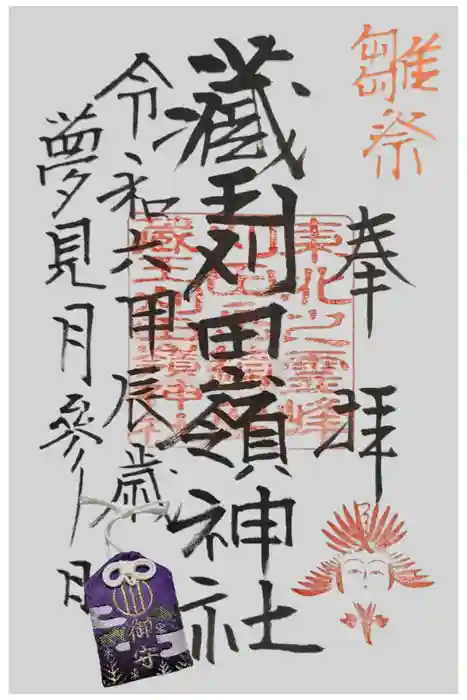 雛祭
奉拝
東北之靈峰
藏王刈田嶺神社
藏王刈田嶺神社
令和六甲辰歳
夢見月參日
御守